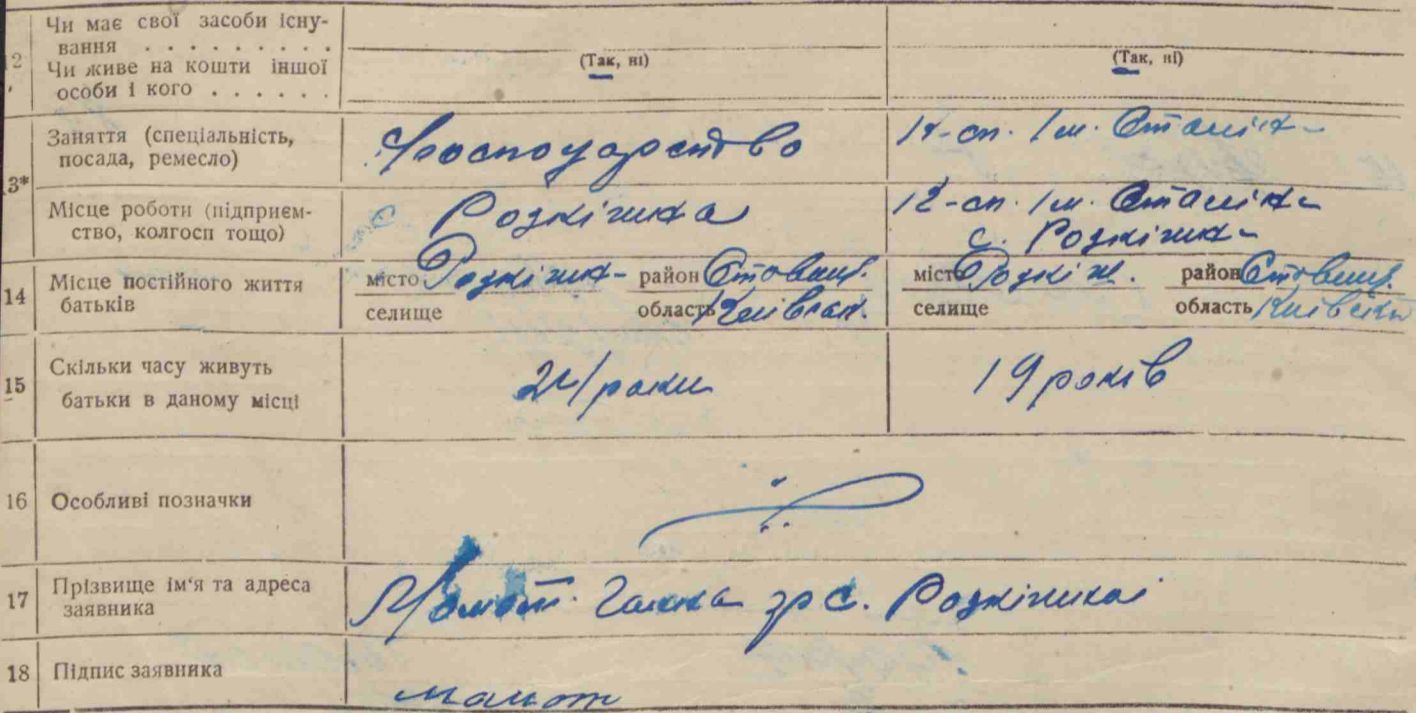 2 Чи має свої засоби існу-
вання . . . . . . . . .
Чи живе на кошти іншої
особи і кого . . . . . .
(Так, ні) (Так, ні)
13* Заняття (спеціальність,
посада, ремесло)
Господарство
Місце роботи (підприєм-
ство, колгосп тощо)
с Розкішна
с. Розкішна
14 Місце постійного життя
батьків
місто Розкішна район Ставищ.
селище область Київськ.
місто Розкіш. район Ставищ.
селище область Київськ
15 Скільки часу живуть
батьки в даному місці
24 роки 19 років
16 Особливі позначки
17 Прізвище ім'я та адреса
заявника
Мамот Ганна с. Розкішна
18 Підпис заявника
мамот